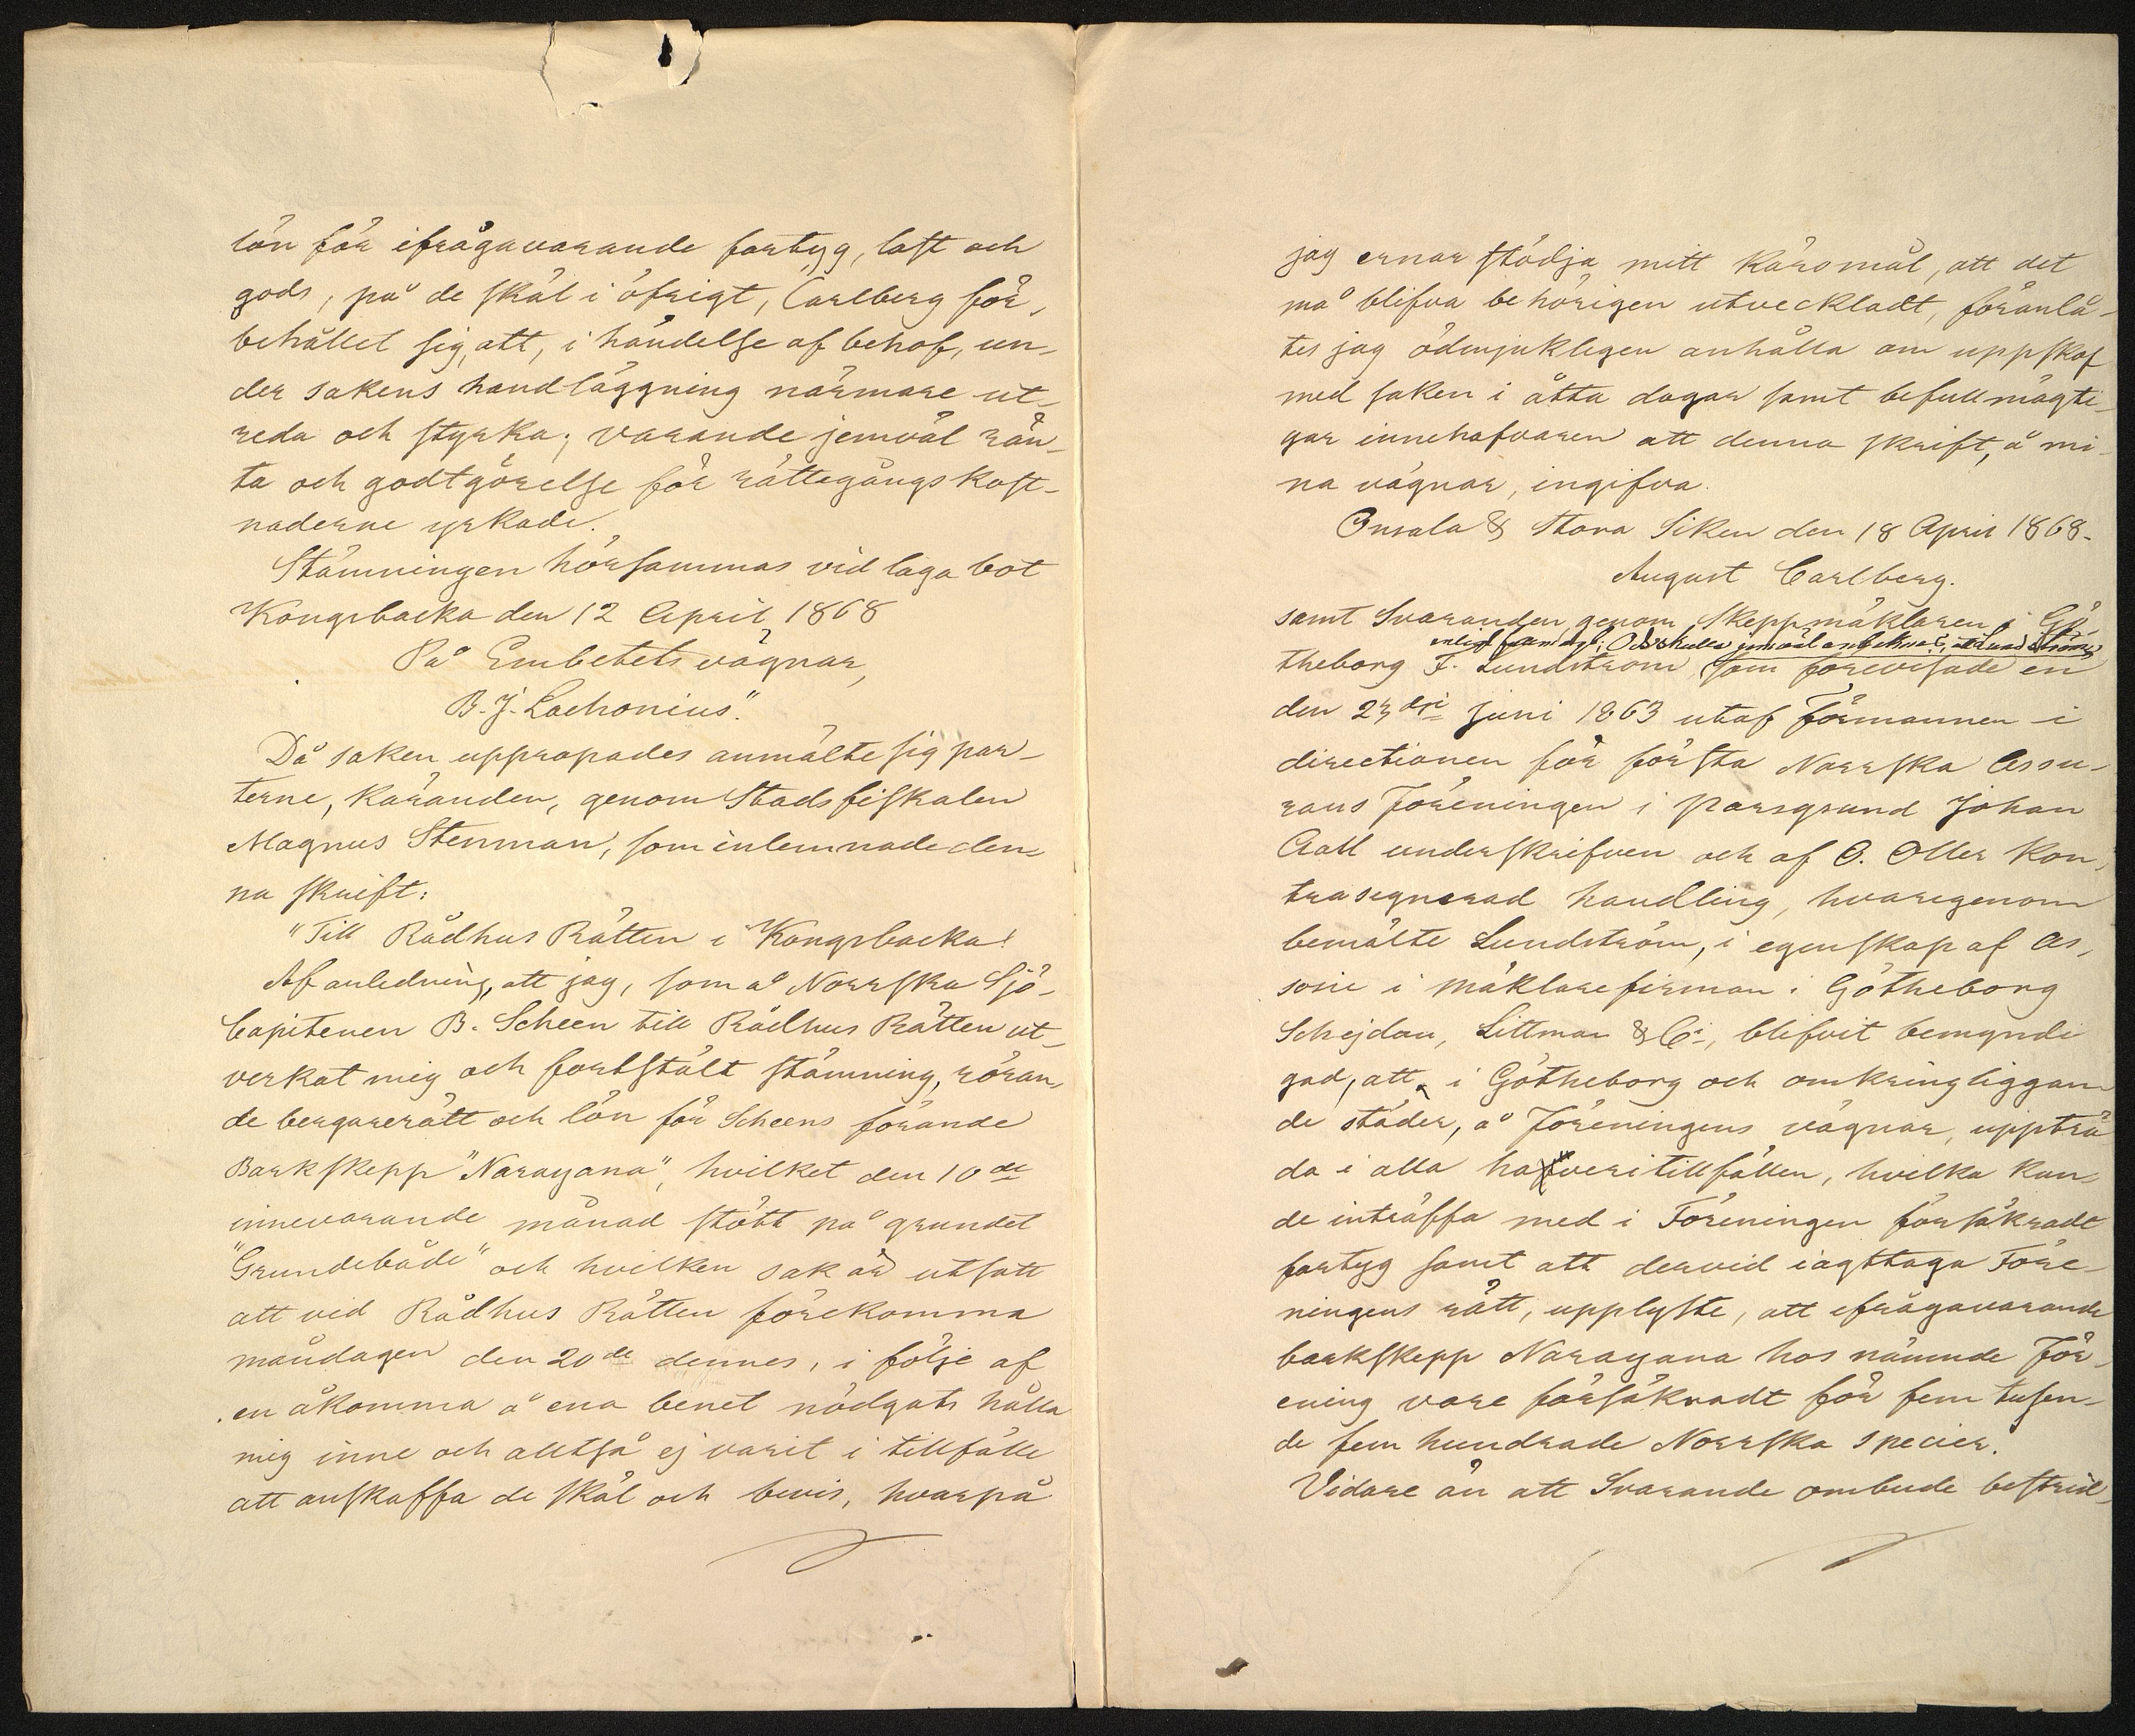 lön för ifrågavarande fartyg, last och
gods, på de skäl i öfrigt, Carlberg för-
behållet sig, att, i händelse af behof, un-
der sakens handläggning närmare ut-
reda och styrka; varande jemväl rän-
ta och godtgörelse för rättegångskost-
naderne yrkade.
Stämningen hörsammas vid laga bot
Kongsbacka den 12 April 1868
På Embetets vägnar,
B. J. Lachonius".
Då saken uppropades anmälte sig par-
terne, Käranden, genom Stadsfiskalen
Magnus Stenman, som inlemnade den-
na skrift:
"Till Rådhus Rätten i Kongsbacka!
Af anledning, att jag, som å Norrska Sjö-
Capitenen B. Scheen till Rådhus Rätten ut-
verkat mig och fortstält stämning, röran-
de bergarerätt och lön för Scheens förande
Barkskepp "Narayana", hvilket den 10de
innevarande månad stött på grundet
"Grundebåde" och hvilken sak är utsatt
att vid Rådhus Rätten förekomma
måndagen den 20de dennes, i följe af
en åkomma å ena benet nödgats hålla
mig inne och alltså ej varit i tillfälle
att anskaffa de skäl och bevis, hvarpå
jag ernar stödja mitt Käromål, att det
må blifva behörigen utveckladt, föranlå-
tes jag ödmjukligen anhålla om uppskof
med saken i åtta dagar samt befullmägti-
gar innehafvaren att denna skrift, å mi-
na vägnar, ingifva.
Onsala & Stora Siken den 18 April 1868.
August Carlberg.
samt Svaranden genom Skeppmäklaren i Gö-
enligt jemväl
theborg F. Lundström, som förevisade en
den 23dje Juni 1863 utaf Förmannen i
directionen för första Norrska Assu-
rans Föreningen i Porsgrund Johan
Aall underskrifven och af O. Oller Kon-
trasegnerad handling, hvarigenom
bemälte Lundström, i egenskap af As-
socie i Mäklarefirman i Götheborg
Schejdau, Littman & Ci, blifvit bemyndi
gad, att i Götheborg och omkringliggan
de städer, å Föreningens vägnar, uppträ
da i alla haveritillfällen, hvilka kun-
de inträffa med i Föreningen försäkradt
fartyg samt att dervid iagttaga Före-
ningens rätt, upplyste, att ifrågavarande
barkskepp Narayana hos nämnde För-
ening vore försäkradt för fem tusen-
de fem hundrade Norrska Specier.
Vidare än att Svarande ombude bestrid-